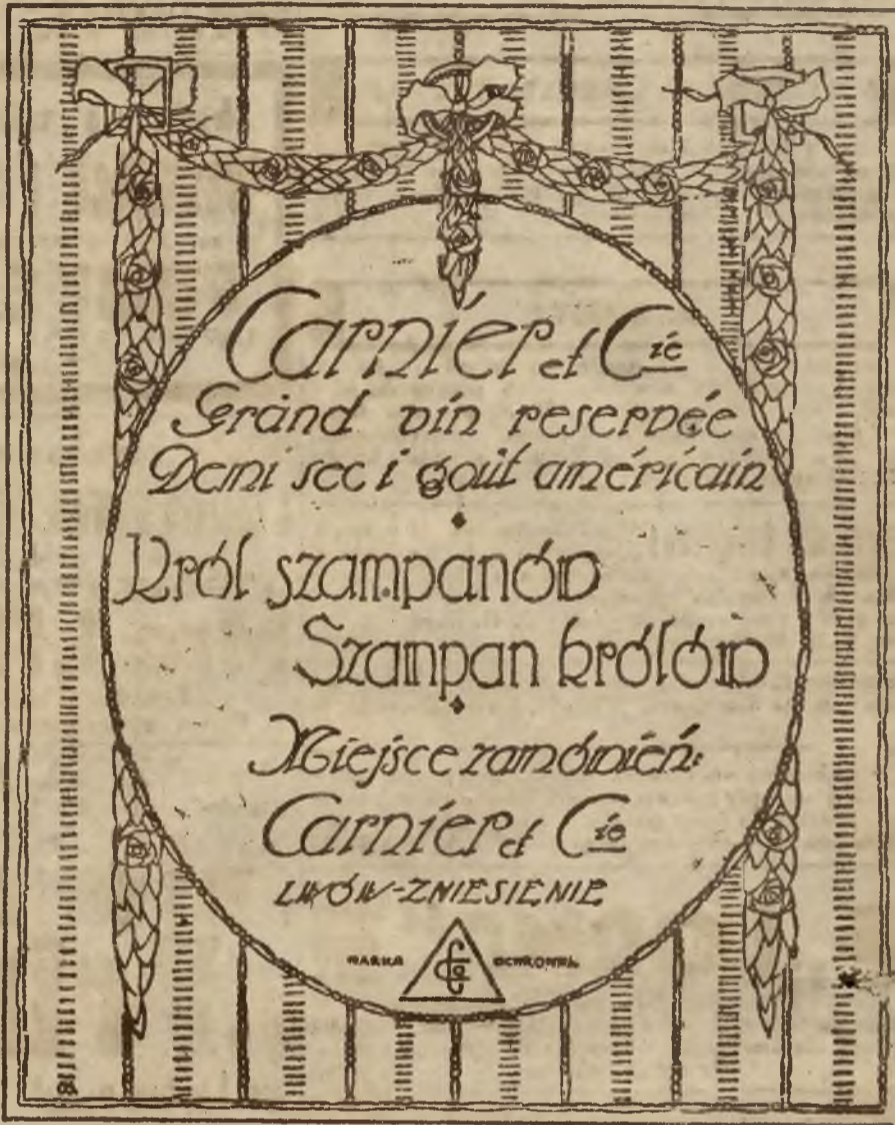 Carniér et Cie
Gránd vín reservée
Demi sec i goût américain
Król szampanów
Szampan królów
Miejsce zamówień:
Carniér et Cie
LWÓW-ZNIESIENIE
MARKA OCHRONNA